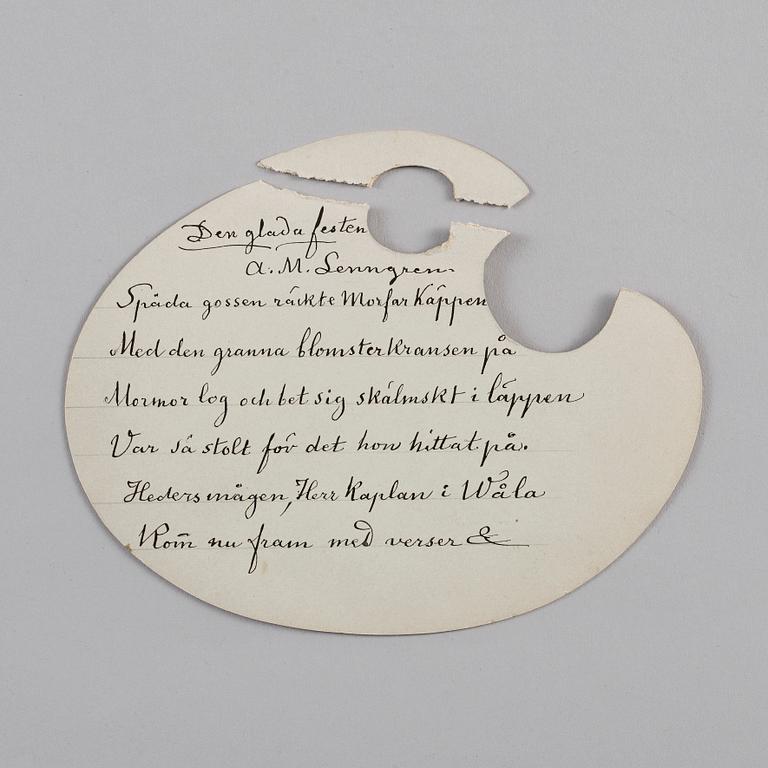 Den glada festen
A. M. Lenngren.
Späda gossen räckte Morfar Käppen
Med den granna blomsterkransen på
Mormor log och bet sig skälmskt i läppen
Var så stolt för det hon hittat på.
Hedersmågen, Herr Kaplan i Wåla
Kom̄ nu fram med verser &